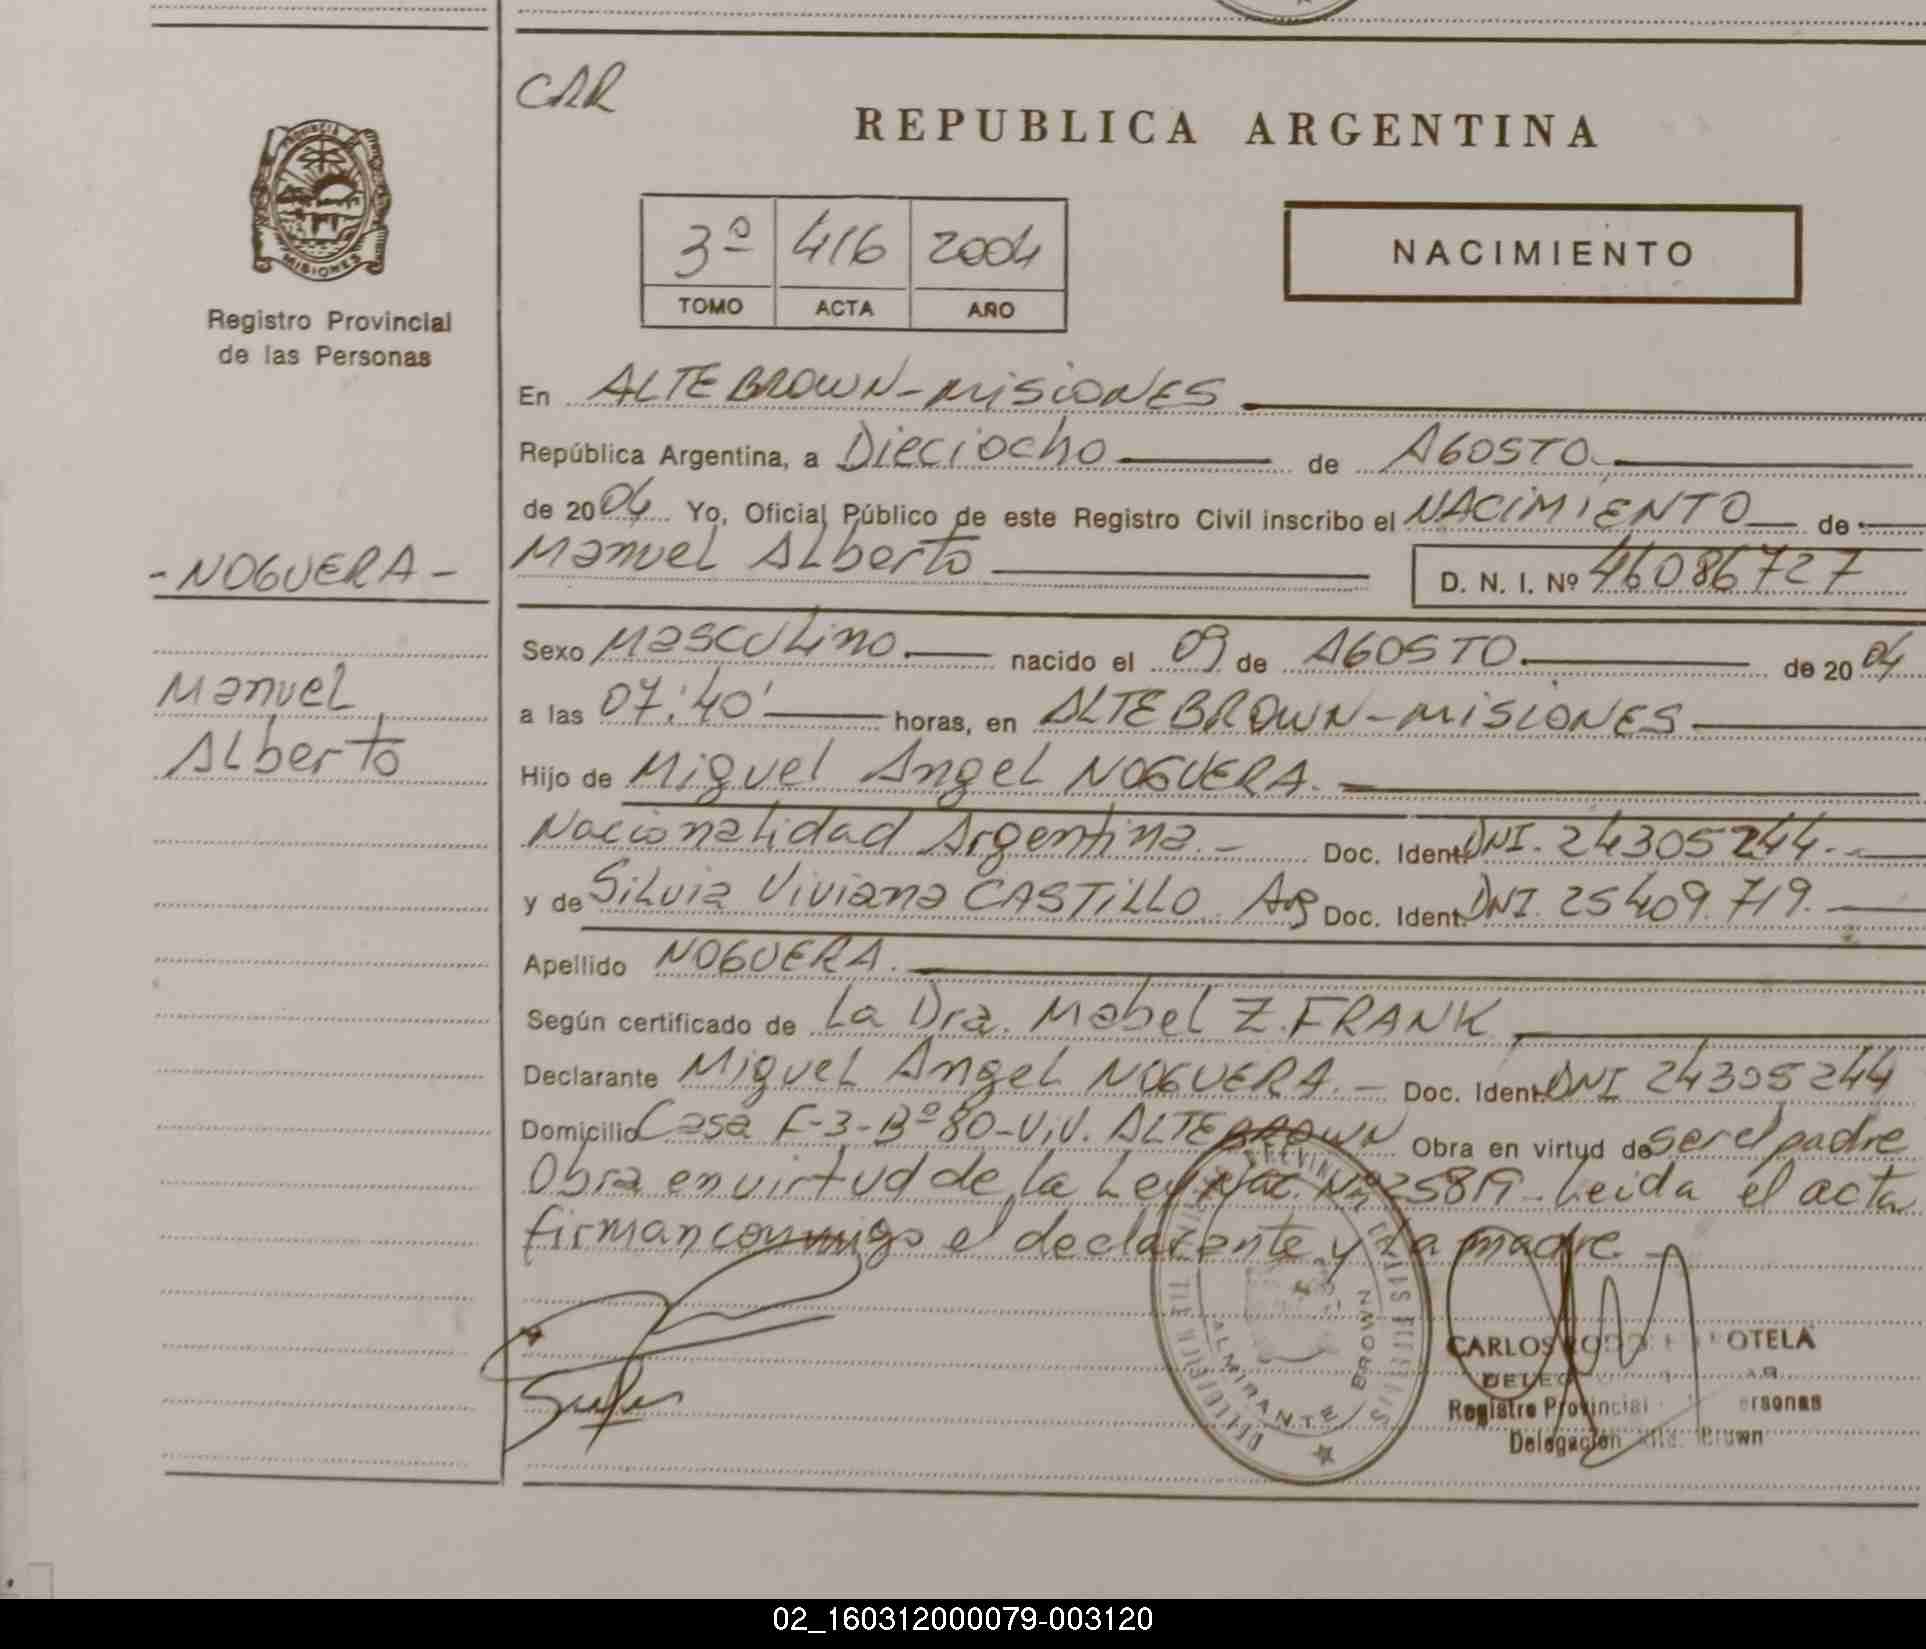 CAR
REPUBLICA ARGENTINA
MISIONES
Registro Provincial
de las Personas
3º 416 2004
TOMO ACTA AÑO
NACIMIENTO
En ALTE BROWN-MISIONES
República Argentina, a Dieciocho de AGOSTO
de 2004 Yo, Oficial Público de este Registro Civil inscribo el NACIMIENTO de
Manuel Alberto D. N. I. Nº 46086727
-NOGUERA-
Manuel
Alberto
Sexo Masculino nacido el 09 de AGOSTO de 2004
a las 07:40' horas, en ALTE BROWN-MISIONES
Hijo de Miguel Angel NOGUERA.
Nacionalidad Argentina.- Doc. Ident. DNI. 24305244.-
y de Silvia Viviana CASTILLO Arg Doc. Ident. DNI. 25409.719.
Apellido NOGUERA.
Según certificado de La Dra. Mabel Z. FRANK
Declarante Miguel Angel NOGUERA.- Doc. Ident. DNI 24305244
Domicilio Casa F-3-Bº80-Viv. ALTE BROWN Obra en virtud de ser el padre
Obra en virtud de la Ley Nac. Nº 25819. Leida el acta
firman conmigo el declarante y la madre.-
ALMIRANTE BROWN
CARLOS OTELA
Registro Provincial ersonas
Delegación Alte. Brown
02_160312000079-003120